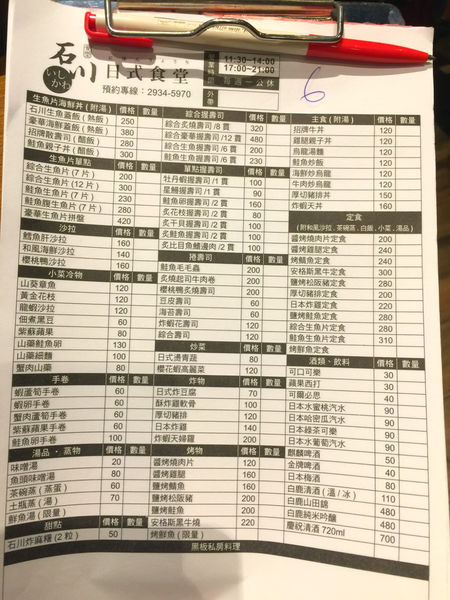 石川 日式食堂
いしかわ
預約專線：2934-5970
營業時間
11:30~14:00
17:00~21:00
每週一公休
外帶
6
生魚片海鮮丼(附湯) 價格 數量
石川生魚蓋飯(熱飯) 250
豪華海鮮蓋飯(熱飯) 380
招牌散壽司(醋飯) 280
鮭魚親子丼(醋飯) 300
生魚片單點 價格 數量
綜合生魚片(7片)
綜合生魚片(12片)
鮭魚生魚片(7片)
鮭魚腹生魚片(7片) 280
豪華生魚片拼盤 420
沙拉 價格 數量
鱈魚肝沙拉 160
和風海鮮沙拉 140
櫻桃鴨沙拉 160
小菜冷物 價格 數量
山葵章魚 60
黃金花枝 120
龍蝦沙拉 120
佃煮黑豆 60
紫蘇蘋果 80
山藥鮭魚卵 130
山藥細麵 100
蟹肉山藥 80
手卷 價格 數量
蝦蘆筍手卷 60
蝦卵手卷 60
蘆筍手卷 60
紫蘇蘋果手卷 60
鮭魚卵手卷 100
湯品、蒸物 價格 數量
味噌湯 20
魚頭味噌湯 80
茶碗蒸(蒸蛋) 50
土瓶蒸(湯) 70
鮮魚湯(限量)
甜點 價格 數量
石川炸麻糬(2粒) 50
綜合握壽司 價格 數量
綜合炙燒壽司/8貫 320
豪華綜合握壽司/12貫 480
綜合生魚握壽司/6貫 280
鮭魚生魚握壽司/6貫 230
單點握壽司 價格 數量
牡丹蝦握壽司/1貫 100
星鰻握壽司/1貫 90
鮭魚卵握壽司/2貫 100
炙花枝握壽司/2貫 80
炙干貝握壽司/2貫 80
炙鮭魚握壽司/2貫 80
炙比目魚鰭邊肉/2貫
捲壽司 價格 數量
鮭魚毛毛蟲 200
炙燒起司牛肉卷 200
櫻桃鴨炙燒壽司 200
豆皮壽司 60
海苔壽司 60
炸蝦花壽司 100
綜合壽司
炒菜 價格 數量
日式燙青蔬 80
櫻花蝦高麗菜
炸物 價格 數量
日式炸豆腐 70
酥炸雞軟骨 100
厚切豬排 120
日本炸雞 140
炸蝦天婦羅 200
烤物 價格 數量
醬烤燒肉片 120
醬烤雞腿 160
鹽烤鯖魚 160
鹽烤松阪豬 200
鹽烤鮭魚 200
安格斯黑牛燒 220
烤鮮魚(限量)
主食(附湯) 價格 數量
招牌牛丼 120
雞腿親子丼 120
烏龍湯麵 120
鮭魚炒飯 120
海鮮炒烏龍 120
牛肉炒烏龍 120
厚切豬排丼 150
炸蝦天丼 160
定食 價格 數量
(附和風沙拉、茶碗蒸、白飯、小菜、湯品)
醬烤燒肉片定食 200
醬烤雞腿定食 240
鹽烤鯖魚定食 240
安格斯黑牛定食 300
鹽烤松阪豬定食 280
厚切豬排定食 200
日本炸雞定食 220
鹽烤鮭魚定食 280
綜合生魚片定食 280
鮭魚生魚片定食 310
烤鮮魚定食
酒類、飲料 價格 數量
可口可樂 30
蘋果西打 30
可爾必思 40
日本水蜜桃汽水 90
日本哈密瓜汽水 90
日本綠茶可樂 90
日本水葡萄汽水 90
麒麟啤酒
金牌啤酒
日本梅酒
白鹿清酒(溫/冰) 110
白鹿山田錦
白鹿純米吟釀 480
慶祝清酒 720ml 700
黑板私房料理